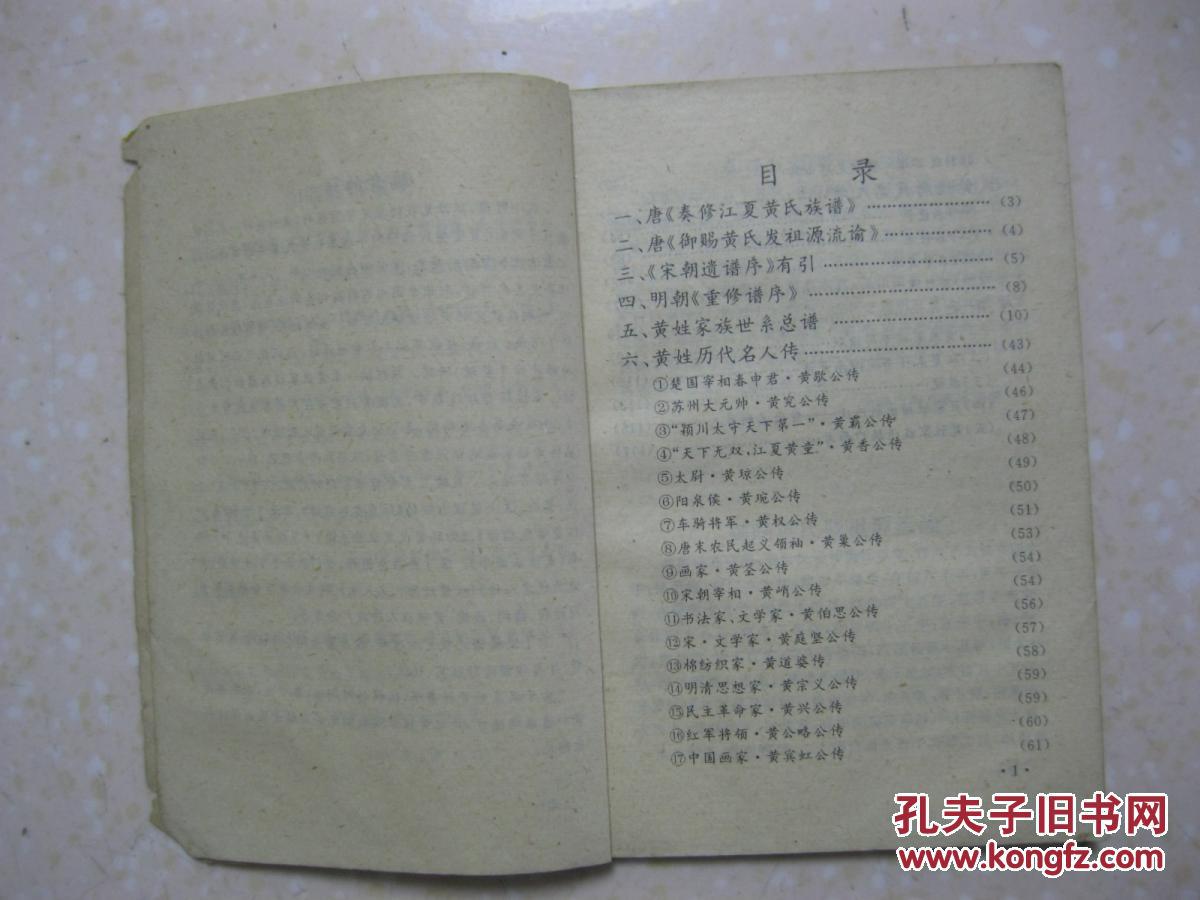 目 录
一、唐《奏修江夏黄氏族谱》……………………(3)
二、唐《御赐黄氏发祖源流谕》…………………(4)
三、《宋朝遗谱序》有引…………………………(5)
四、明朝《重修谱序》……………………………(8)
五、黄姓家族世系总谱……………………………(10)
六、黄姓历代名人传………………………………(43)
①楚国宰相春申君·黄歇公传 (44)
②苏州大元帅·黄宛公传 (46)
③“颖川太守天下第一”·黄霸公传 (47)
④“天下无双,江夏黄童”·黄香公传 (48)
⑤太尉·黄琼公传 (49)
⑥阳泉侯·黄琬公传 (50)
⑦车骑将军·黄权公传 (51)
⑧唐末农民起义领袖·黄巢公传 (53)
⑨画家·黄筌公传 (54)
⑩宋朝宰相·黄峭公传 (54)
⑪书法家、文学家·黄伯思公传 (56)
⑫宋·文学家·黄庭坚公传 (57)
⑬棉纺织家·黄道婆传 (58)
⑭明清思想家·黄宗义公传 (59)
⑮民主革命家·黄兴公传 (59)
⑯红军将领·黄公略公传 (60)
⑰中国画家·黄宾虹公传 (61)
·1·
孔夫子旧书网
www.kongfz.com